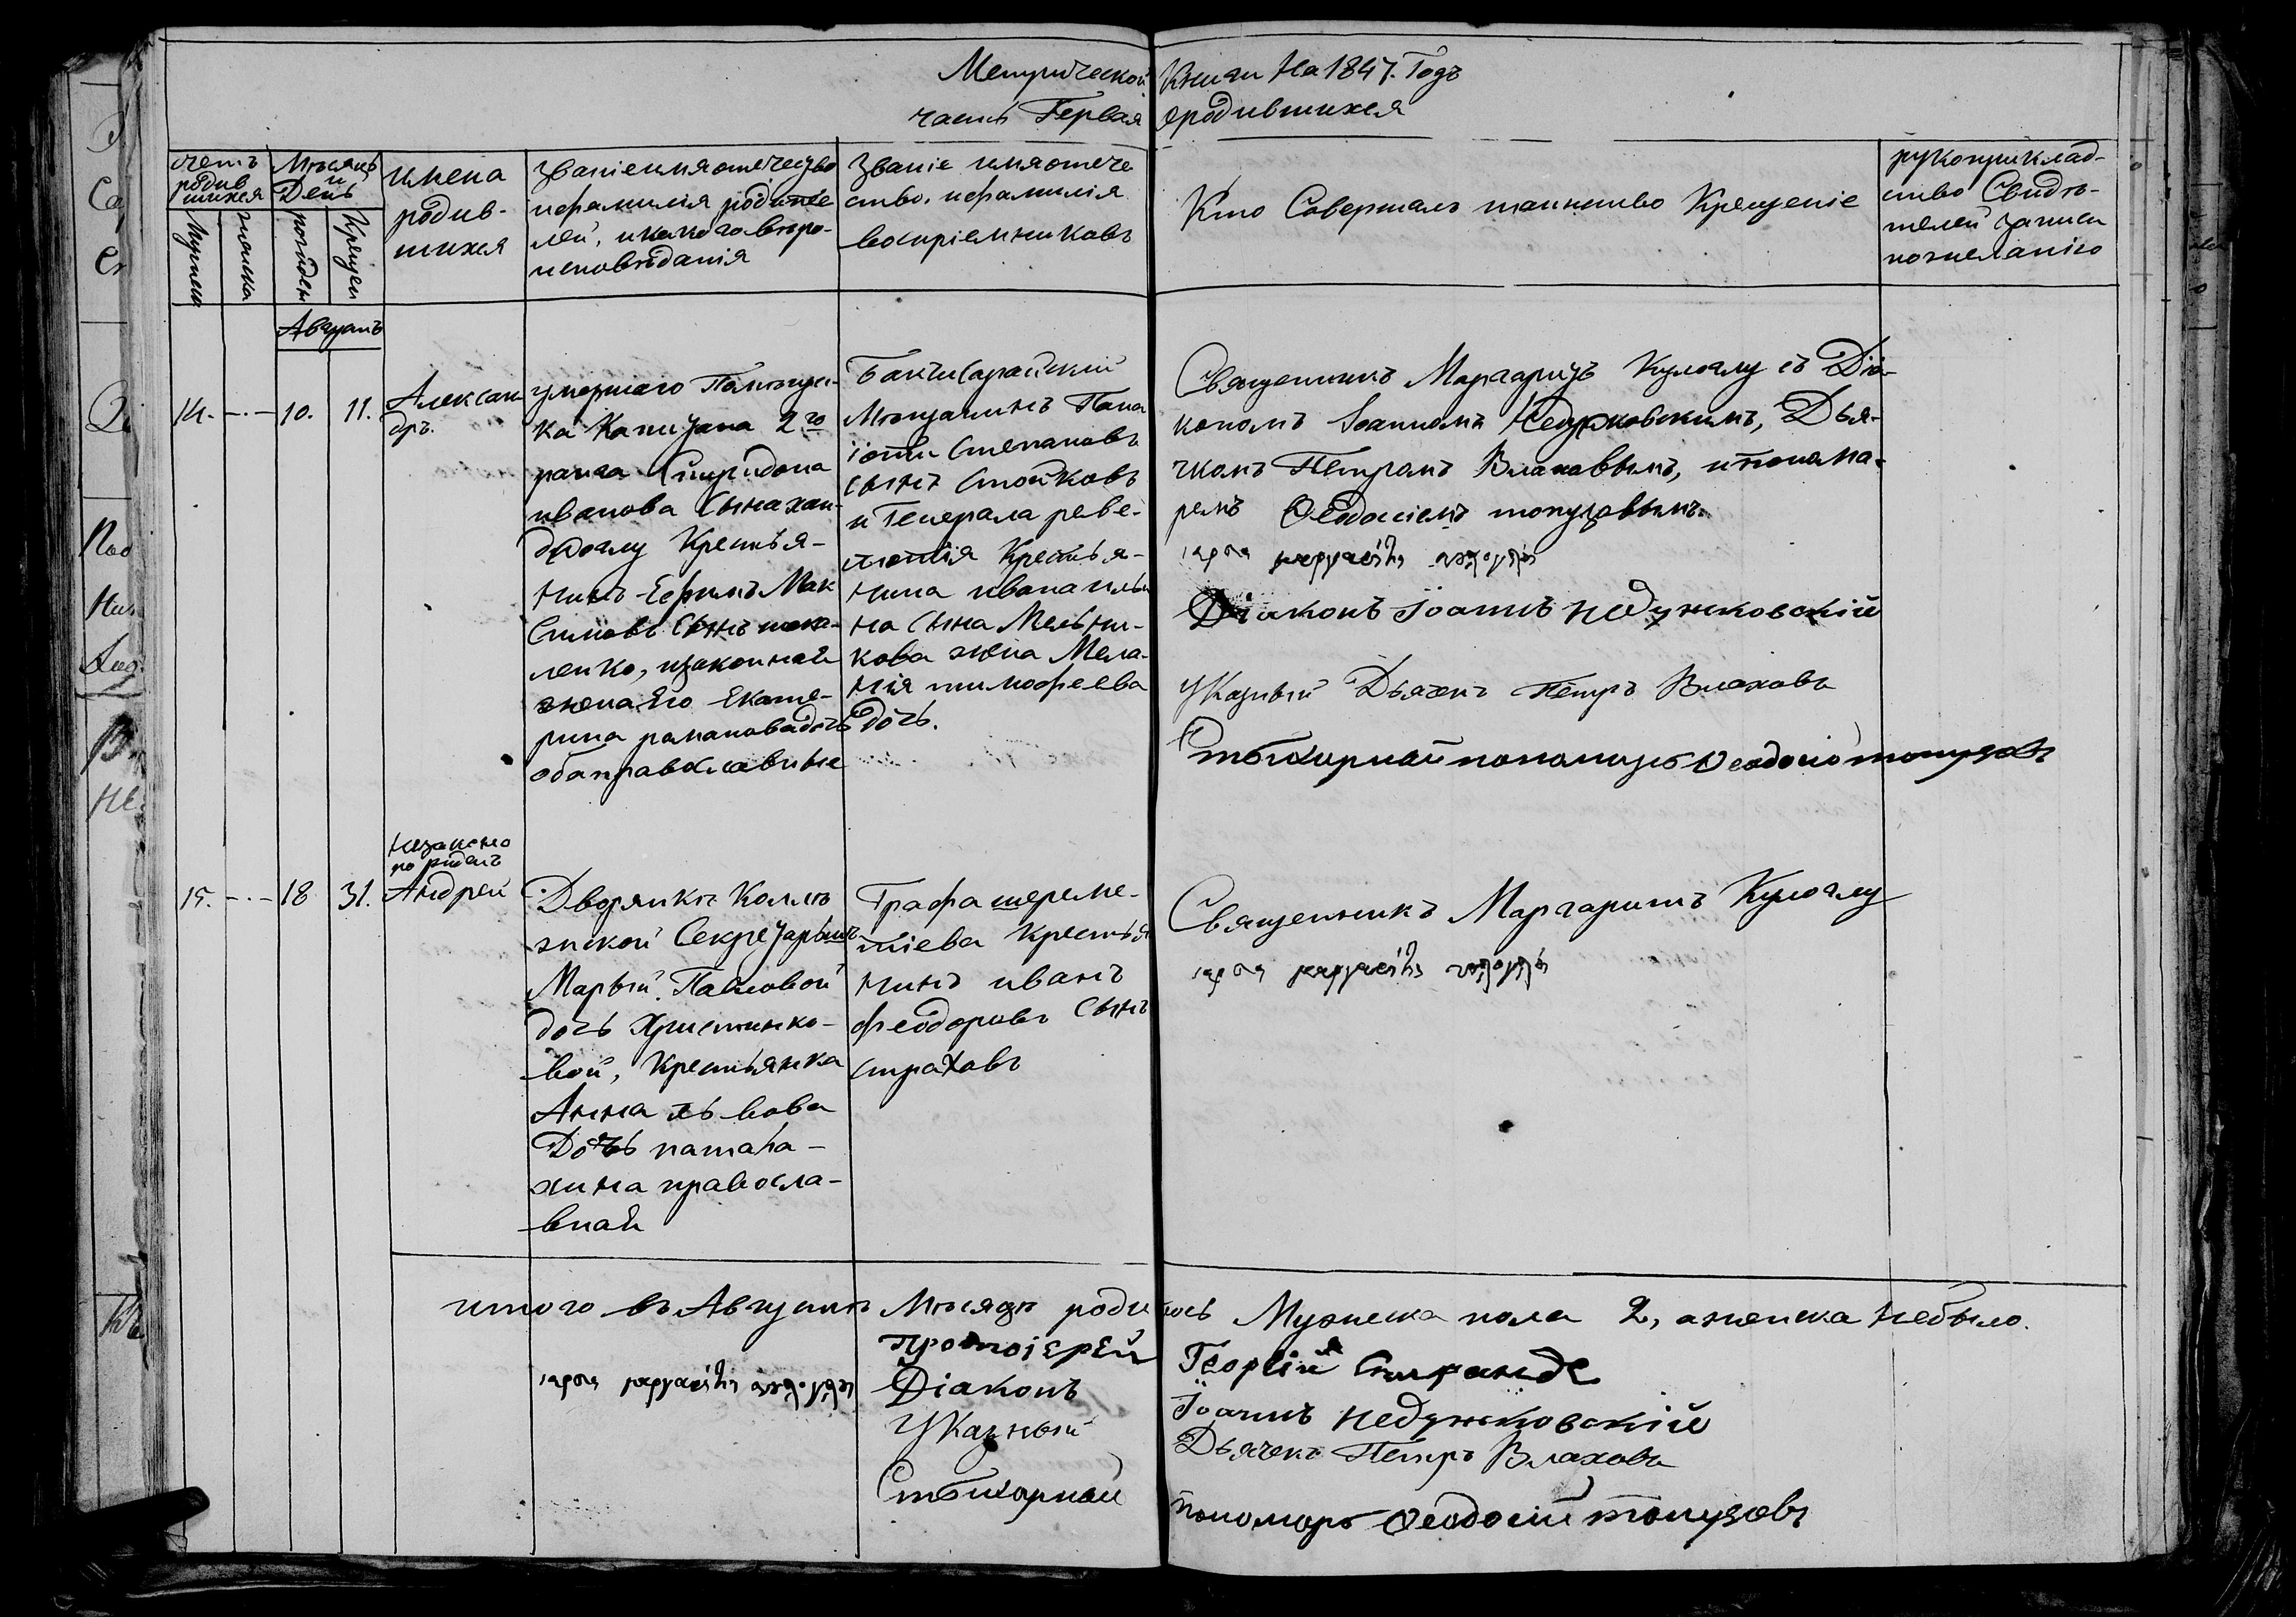 Метрической Книги На 1847. Годъ
часть Первая ородившихся
счетъ родив шихся
Мужеска
женска
Мѣсяцъ и День
рожден
Крещен
имена родив-
шихся
Званіе имя отечество
ифамилія родите
лей, икакого вѣро-
исповѣданія
Званіе имя отече
ство, ифамилія
воспріемниковъ
Кто Совершалъ таинство Крещеніе
рукоприклад-
ство Свидѣ-
телей записи
пожеланію
Августъ
14. -.- 10. 11.
Алексан
дръ.
умершаго
ка Капитана 2го
ранга Спиридона
иванова Сына хан-
дожлу Крестья-
нинъ Ефимъ Мак
симовъ Сынъ
ленко, изаконная
жена Его Екате-
рина романова дочь
оба православные
Бахчисарайскій
Мѣщанинъ Пана
іоти Степановъ
сынъ Стойковъ
и Генерала реве-
ліотія Крестья-
нина ивана ильи
на Сына Мельни-
кова жена Мела-
нія тимофеева
дочь.
Священникъ Маргаритъ Кулоглу съ Діа-
кономъ Іоанномъ Недужковскимъ, Дья-
чкомъ Петромъ Влаховымъ, ипонома-
ремъ Ѳеодосіемъ топузовымъ.
Діаконъ Іоаннъ Недужковскій
Указный Дьячекъ Петръ Влаховъ
Стихарный пономарь Ѳеодосій топузовъ
Незаконно
по рiданъ
15. -.- 18 31. Андрей
Дворянки Колле
жской Секретарьши
Марьи Павловой
дочь Христинко-
вой, Крестьянка
Анна львова
Дочь
православ-
ная
Графа шереме-
тіева Крестья
нинъ иванъ
феодоровъ Сынъ
страховъ
Священникъ Маргаритъ Кулоглу
итого въ Августѣ Мѣсяцѣ родилось Мужеска пола 2, аженска небыло.
протоіерей Георгій Спиранде
Діаконъ Іоаннъ Недужковскій
Указный Дьячекъ Петръ Влаховъ
Стихарный пономарь Ѳеодосій топузовъ